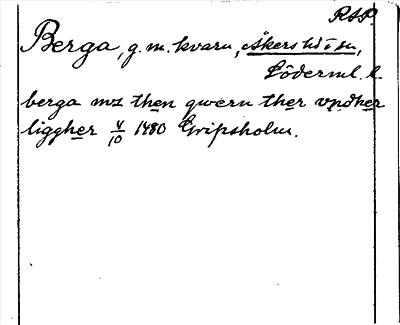 RAP.
Berga, g. m. kvarn, Åkers hd i sn,
Söderml. l.
berga mz then qwern ther vndher
liggher 4/10 1480 Gripsholm.